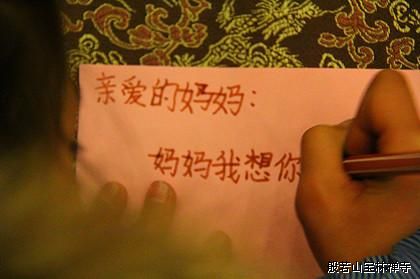 亲爱的妈妈：
妈妈我想你
般若山宝林禅寺